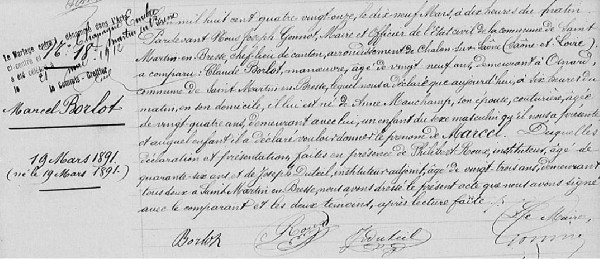 Le Mariage entre
ci-contre et
a été célébré
le
Le Commis-Greffier
Marcel Borlot
19 Mars 1891.
(né le 19 Mars 1891.)
mil huit cent quatre vingt onze, le dix neuf Mars, à dix heures du matin
Pardevant Nous Joseph Gonnot, Maire et Officier de l'Etat civil de la commune de Saint
Martin en Bresse, chef lieu de canton, arrondissement de Chalon sur Saône (Saône et Loire)
a comparu: Claude Borlot, manœuvre, âgé de vingt neuf ans, demeurant à
commune de Saint Martin en Bresse, lequel nous a déclaré que aujourd'hui, à six heures du
matin, en son domicile, il lui est né de Anne Mauchamp, son épouse, couturière, âgée
de vingt quatre ans, demeurant avec lui, un enfant du sexe masculin qu'il nous a présenté
et auquel enfant il a déclaré vouloir donner le prénom de Marcel. Desquelles
déclaration et présentation, faites en présence de Philibert Roux, instituteur, âgé de
quarante-six ans et de Joseph Duteil, instituteur adjoint, âgé de vingt-trois ans, demeurant
tous deux à Saint Martin en Bresse, nous avons dressé le présent acte que nous avons signé
avec le comparant et les deux témoins, après lecture faite.
Le Maire
Borlot Roux J Duteil